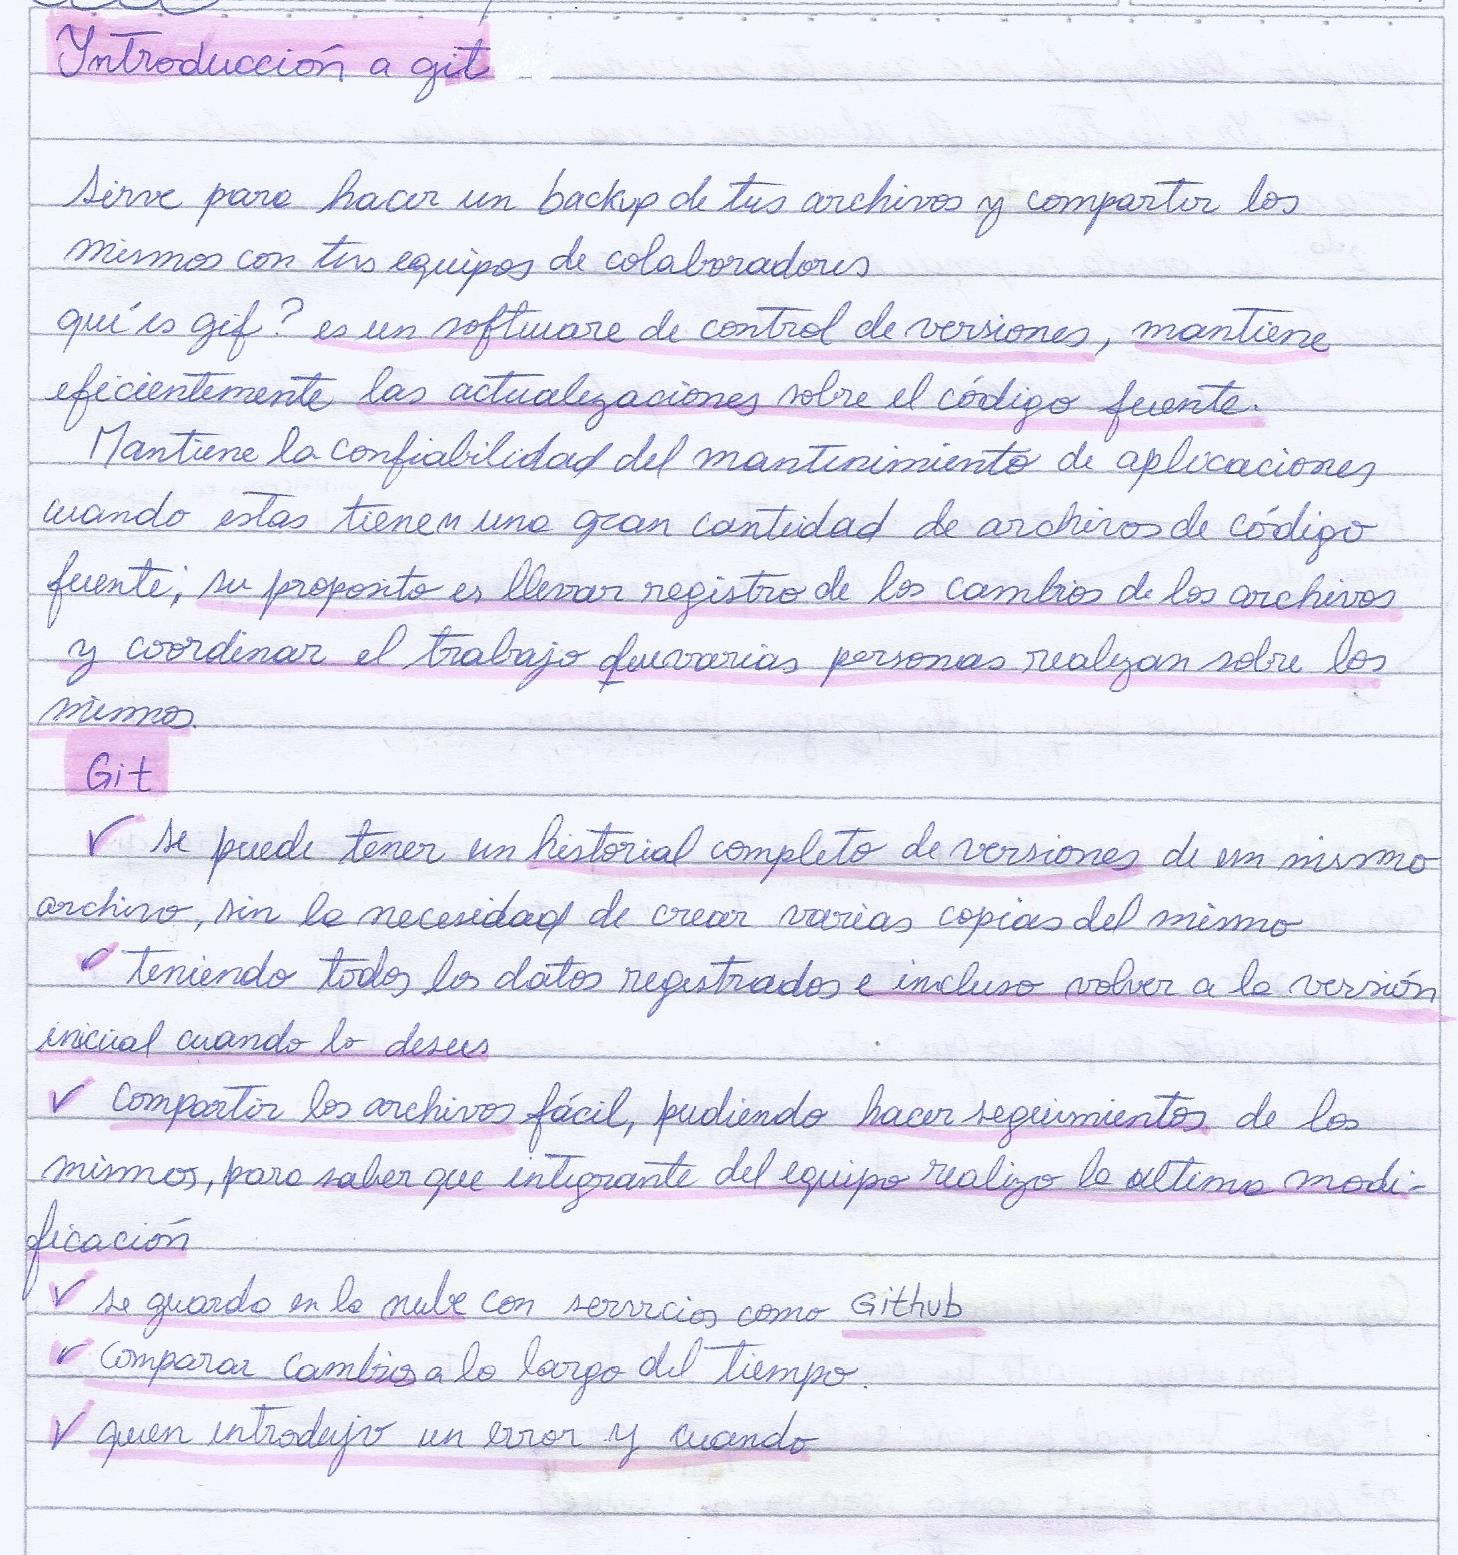 Introducción a git
sirve para hacer un backup de tus archivos y compartir los
mismos con tus equipos de colaboradores
qué es gif? es un software de control de versiones, mantiene
eficientemente las actualizaciones sobre el código fuente.
Mantiene la confiabilidad del mantenimiento de aplicaciones
cuando estas tienen una gran cantidad de archivos de código
fuente; su proposito es llevar registro de los cambios de los archivos
y coordinar el trabajo que varias personas realizan sobre los
mismos.
Git
✓ se puede tener un historial completo de versiones de un mismo
archivo, sin la necesidad de crear varias copias del mismo
✓ teniendo todos los datos registrados e incluso volver a la versión
inicial cuando lo desees
✓ compartir los archivos fácil, pudiendo hacer seguimientos de los
mismos, para saber que integrante del equipo realizo la ultima modi-
ficación
✓ se guarda en la nube con servicios como Github
✓ comparar cambios a lo largo del tiempo.
✓ quien introdujo un error y cuando